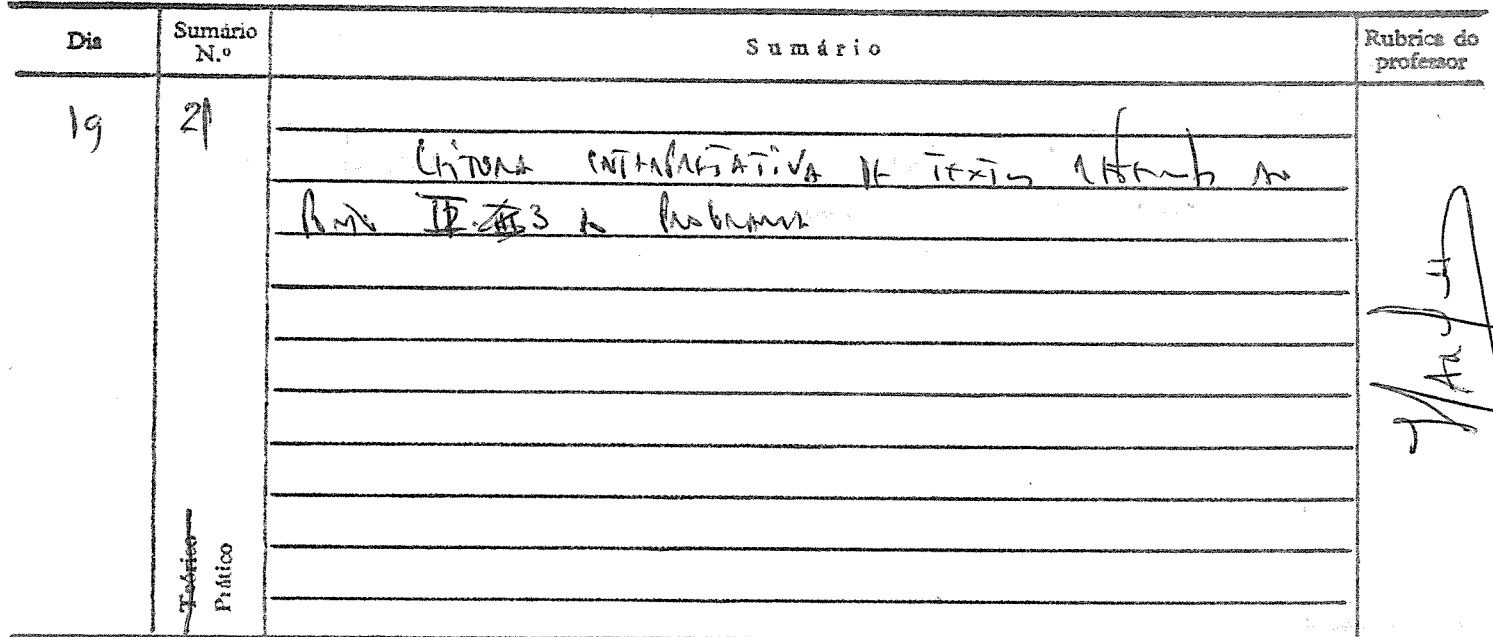 Dia Sumário N.º Sumário Rubrica do professor
19 21
Leitura interpretativa de textos referentes ao
Ponto II. 3 do Programa
Teórico
Prático